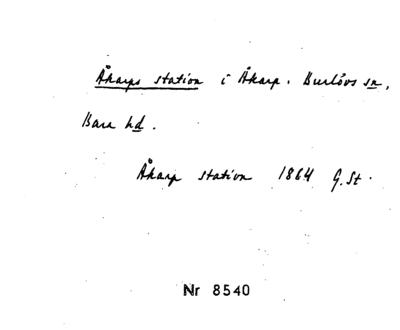 Åkarps station i Åkarp. Burlövs sn,
Bara hd.
Åkarp station 1864 G. St.
Nr 8540